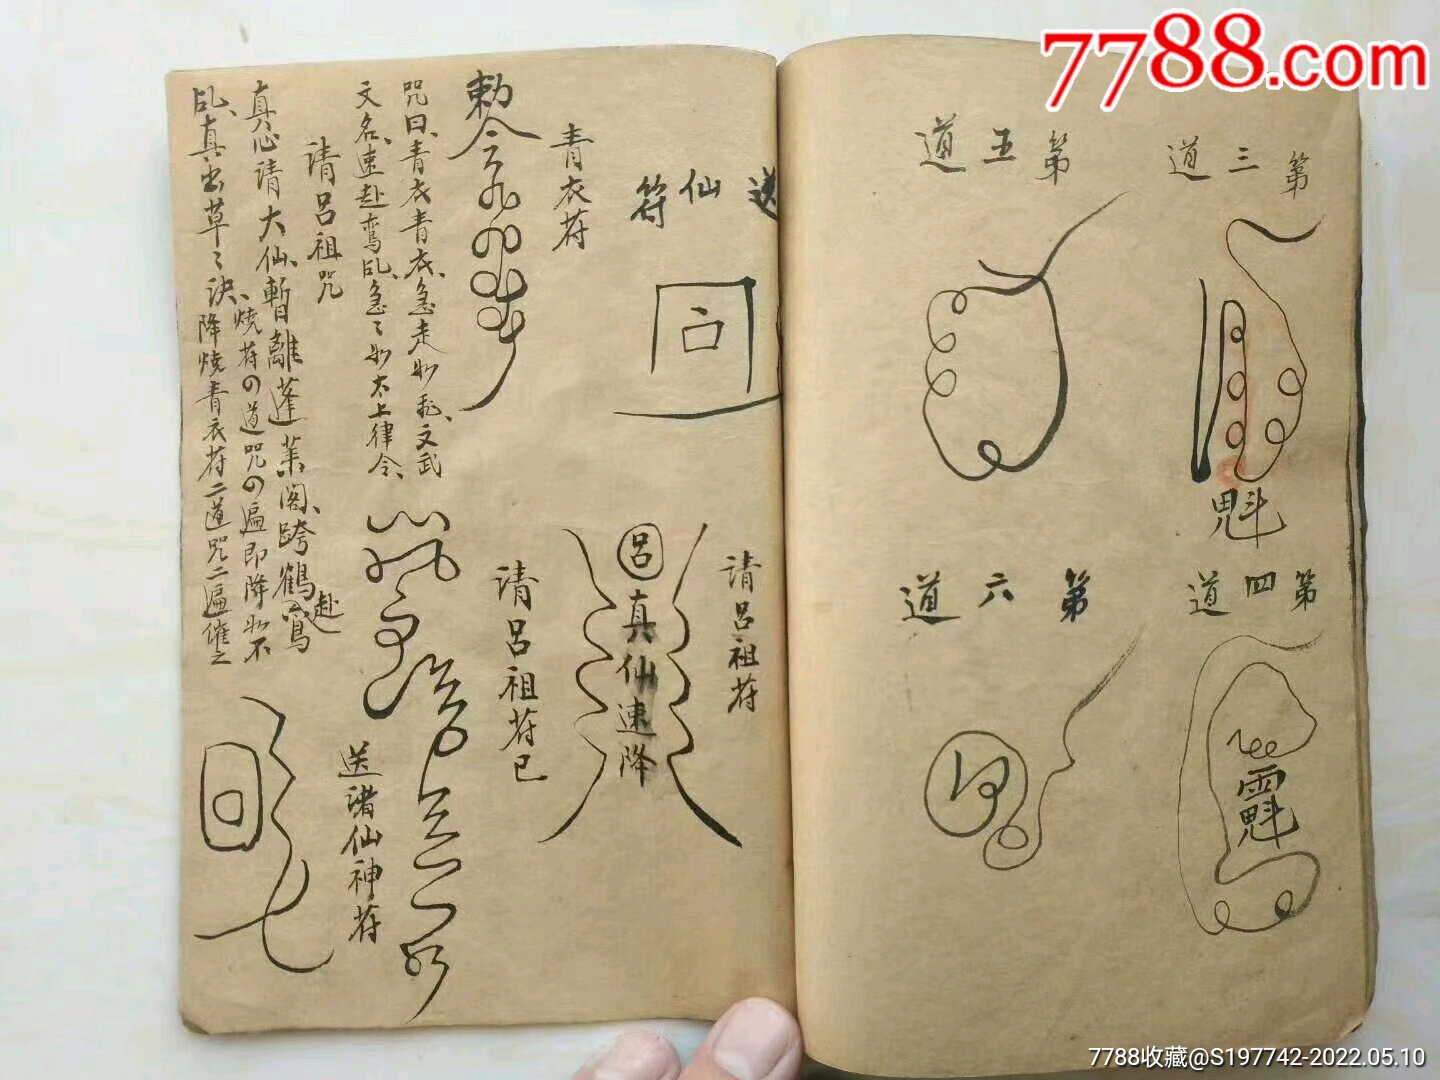 7788.com
第三道
魁
第四道
第五道
第六道
送仙符
请吕祖符
吕真仙速降
请吕祖符已
青衣符
勅令
咒曰、青衣青衣、急走如飞、文武
文名、速赴鸾乩、急々如太上律令、
请吕祖咒
真心请大仙、暂離蓬莱阁、跨鶴赴鸾
乩、真出草々诀、
烧符の道咒の遍即降如不
降烧青衣符二道咒二遍催之
送诸仙神符
7788收藏@S197742-2022.05.10